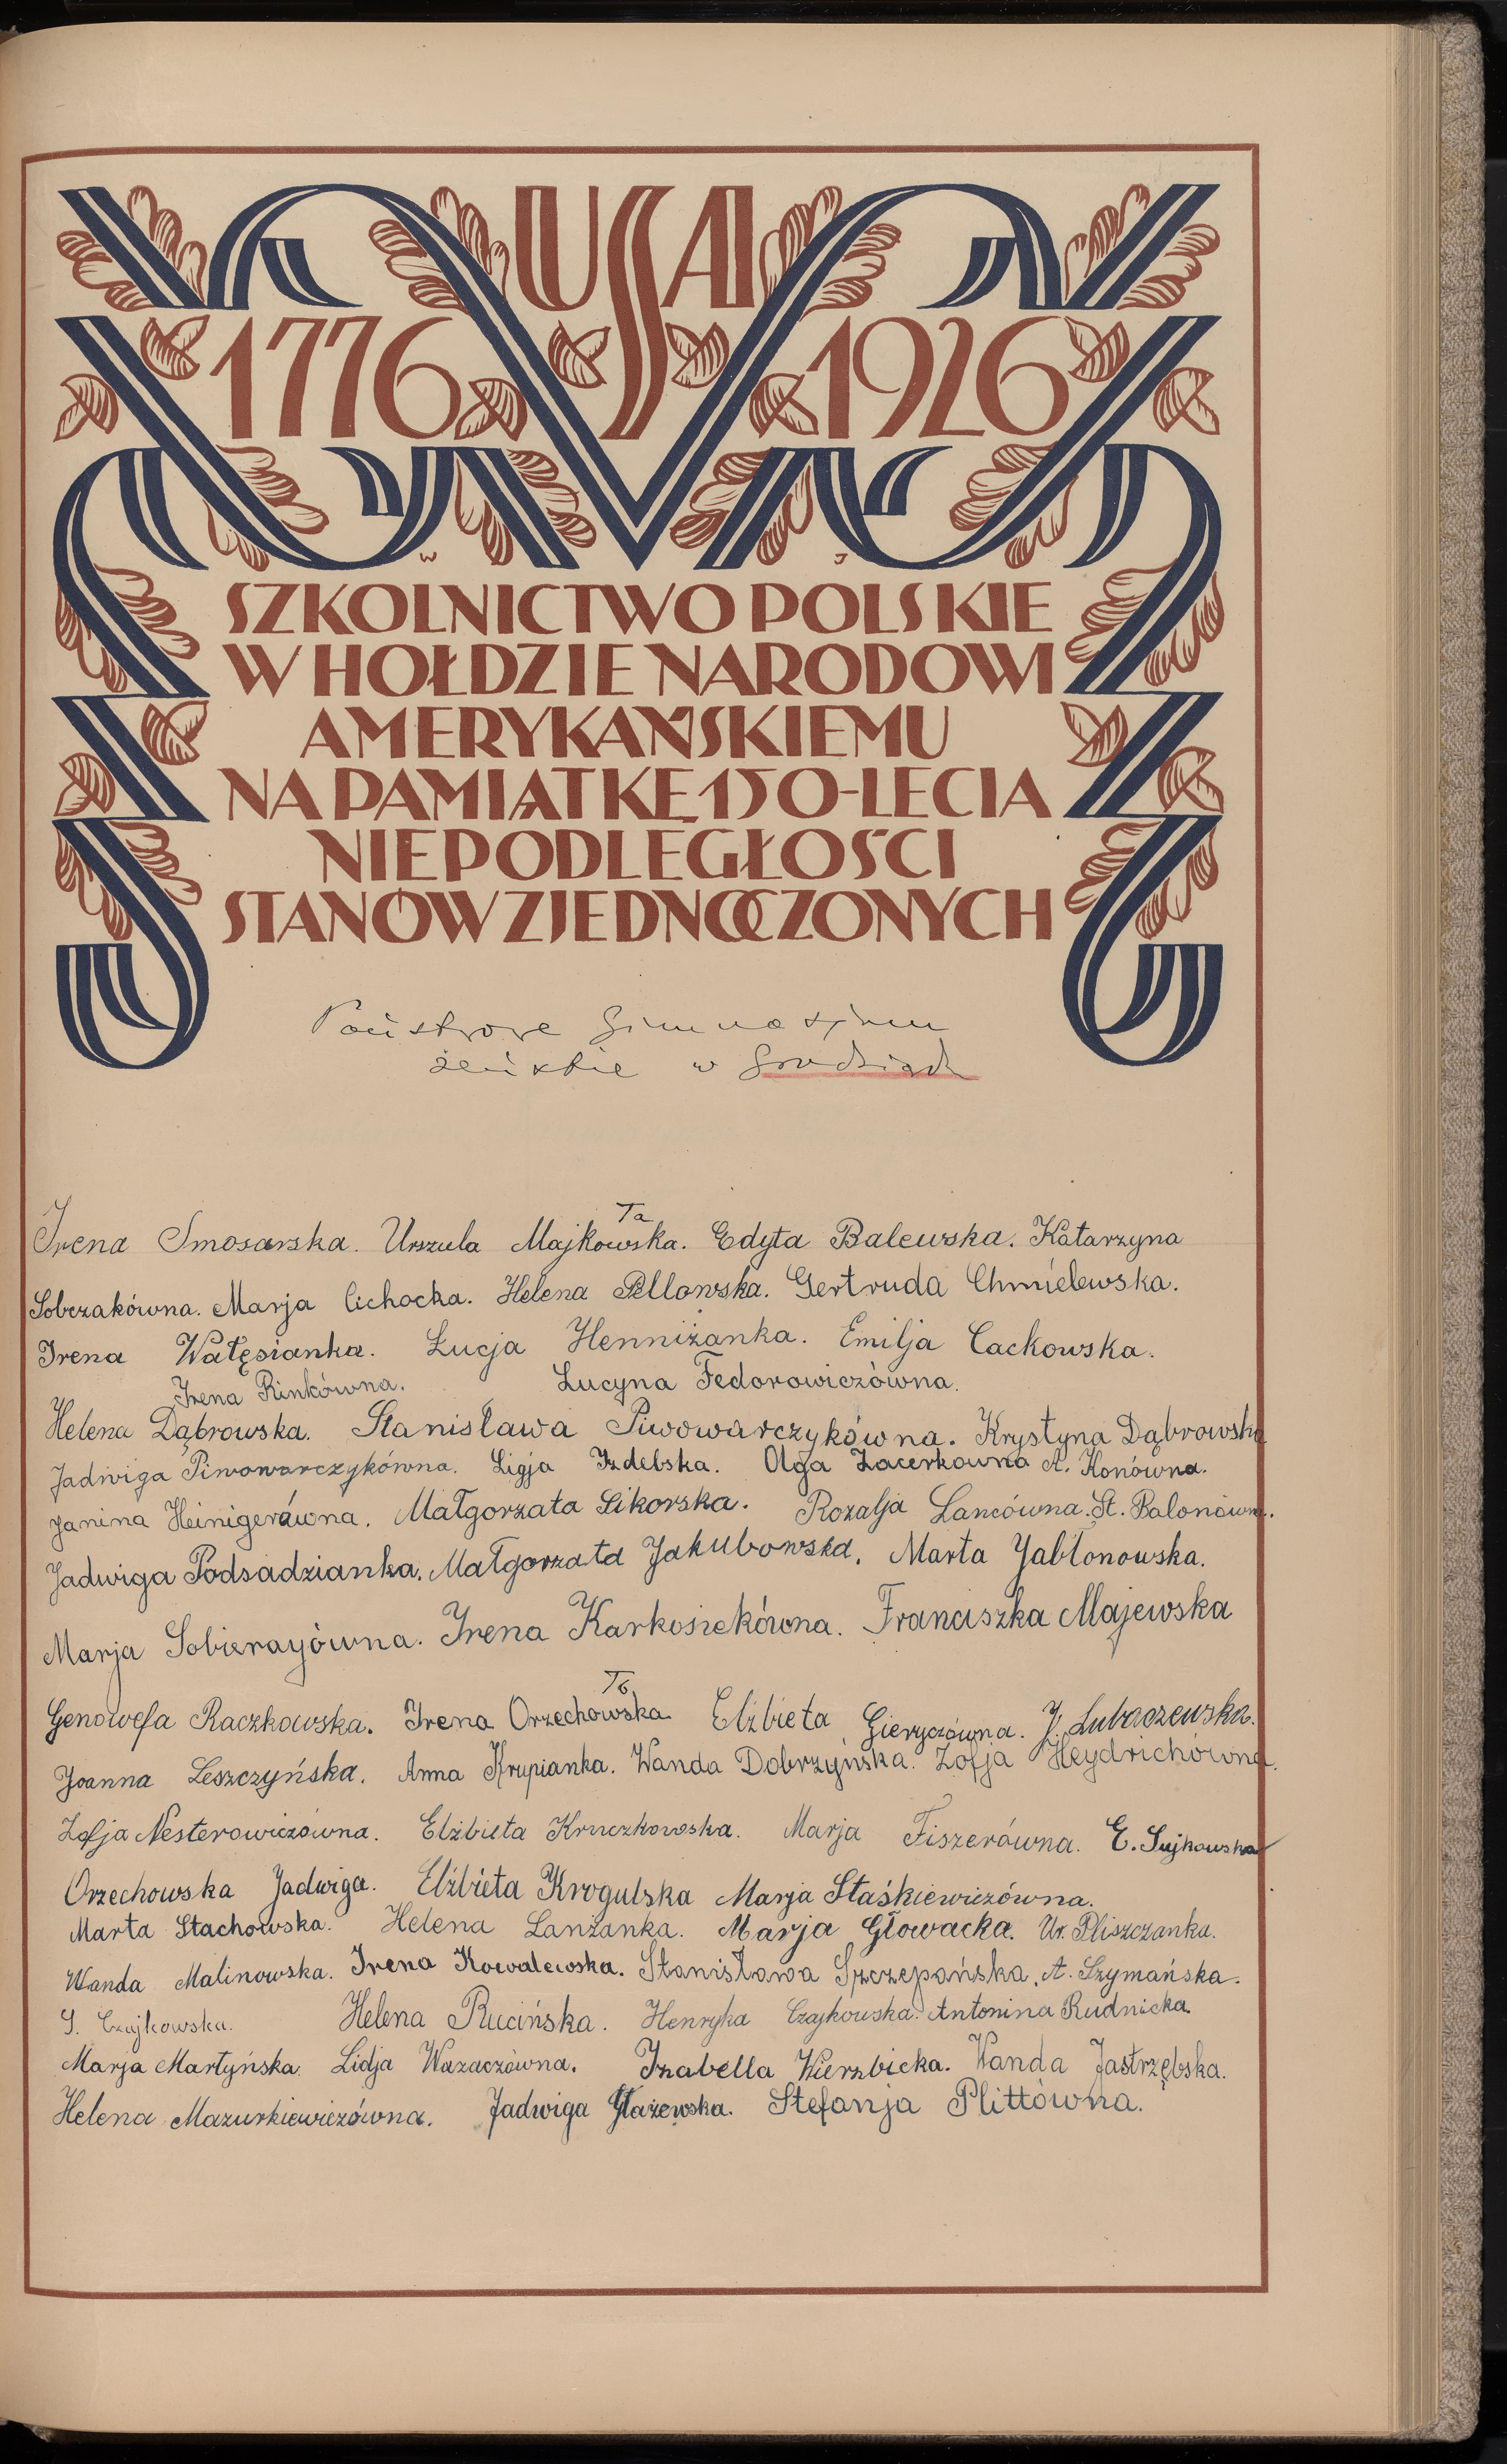 USA
1776 1926
W J
SZKOLNICTWO POLSKIE
W HOŁDZIE NARODOWI
AMERYKAŃSKIEMU
NA PAMIĄTKĘ 150-LECIA
NIEPODLEGŁOŚCI
STANÓW ZJEDNOCZONYCH
Państwowe Gimnazjum
żeńskie w
7a
Irena Smosarska. Urszula Majkowska. Edyta Balewska. Katarzyna
Sobczakówna. Marja Cichocka. Helena Pellowska. Gertruda Chmielewska.
Irena Wałęsianka. Łucja Henniżanka. Emilja Cackowska.
Irena Rinkówna. Lucyna Fedorowiczówna.
Helena Dąbrowska. Stanisława Piwowarczykówna. Krystyna Dąbrowska
Jadwiga Piwowarczykówna. Ligja Izdebska. Olga Zacerkowna A. Konówna.
Janina Heinigerówna. Małgorzata Sikorska. Rozalja Lancówna. St. Balonówna.
Jadwiga Podsadzianka. Małgorzata Jakubowska. Marta Jabłonowska.
Marja Sobierayówna. Irena Karkosiekówna. Franciszka Majewska
7b
Genowefa Raczkowska. Irena Orzechowska Elżbieta Gieryczówna. J. Lubaczewska.
Joanna Leszczyńska. Anna Krupianka. Wanda Dobrzyńska. Zofja Heydrichówna.
Zofja Nesterowiczówna. Elżbieta Kruczkowska. Marja Fiszerówna. E. Sujkowska
Orzechowska Jadwiga. Elżbieta Krogulska Marja Staśkiewiczówna.
Marta Stachowska. Helena Lanżanka. Marja Głowacka. Ur. Pliszczanka.
Wanda Malinowska. Irena Kowalewska. Stanisława Szczepańska. A. Szymańska.
S. Czajkowska. Helena Rucińska. Henryka Czajkowska. Antonina Rudnicka
Marja Martyńska. Lidja Wazaczówna. Izabella Wierzbicka. Wanda Jastrzębska.
Helena Mazurkiewiczówna. Jadwiga Głażewska. Stefanja Plittówna.